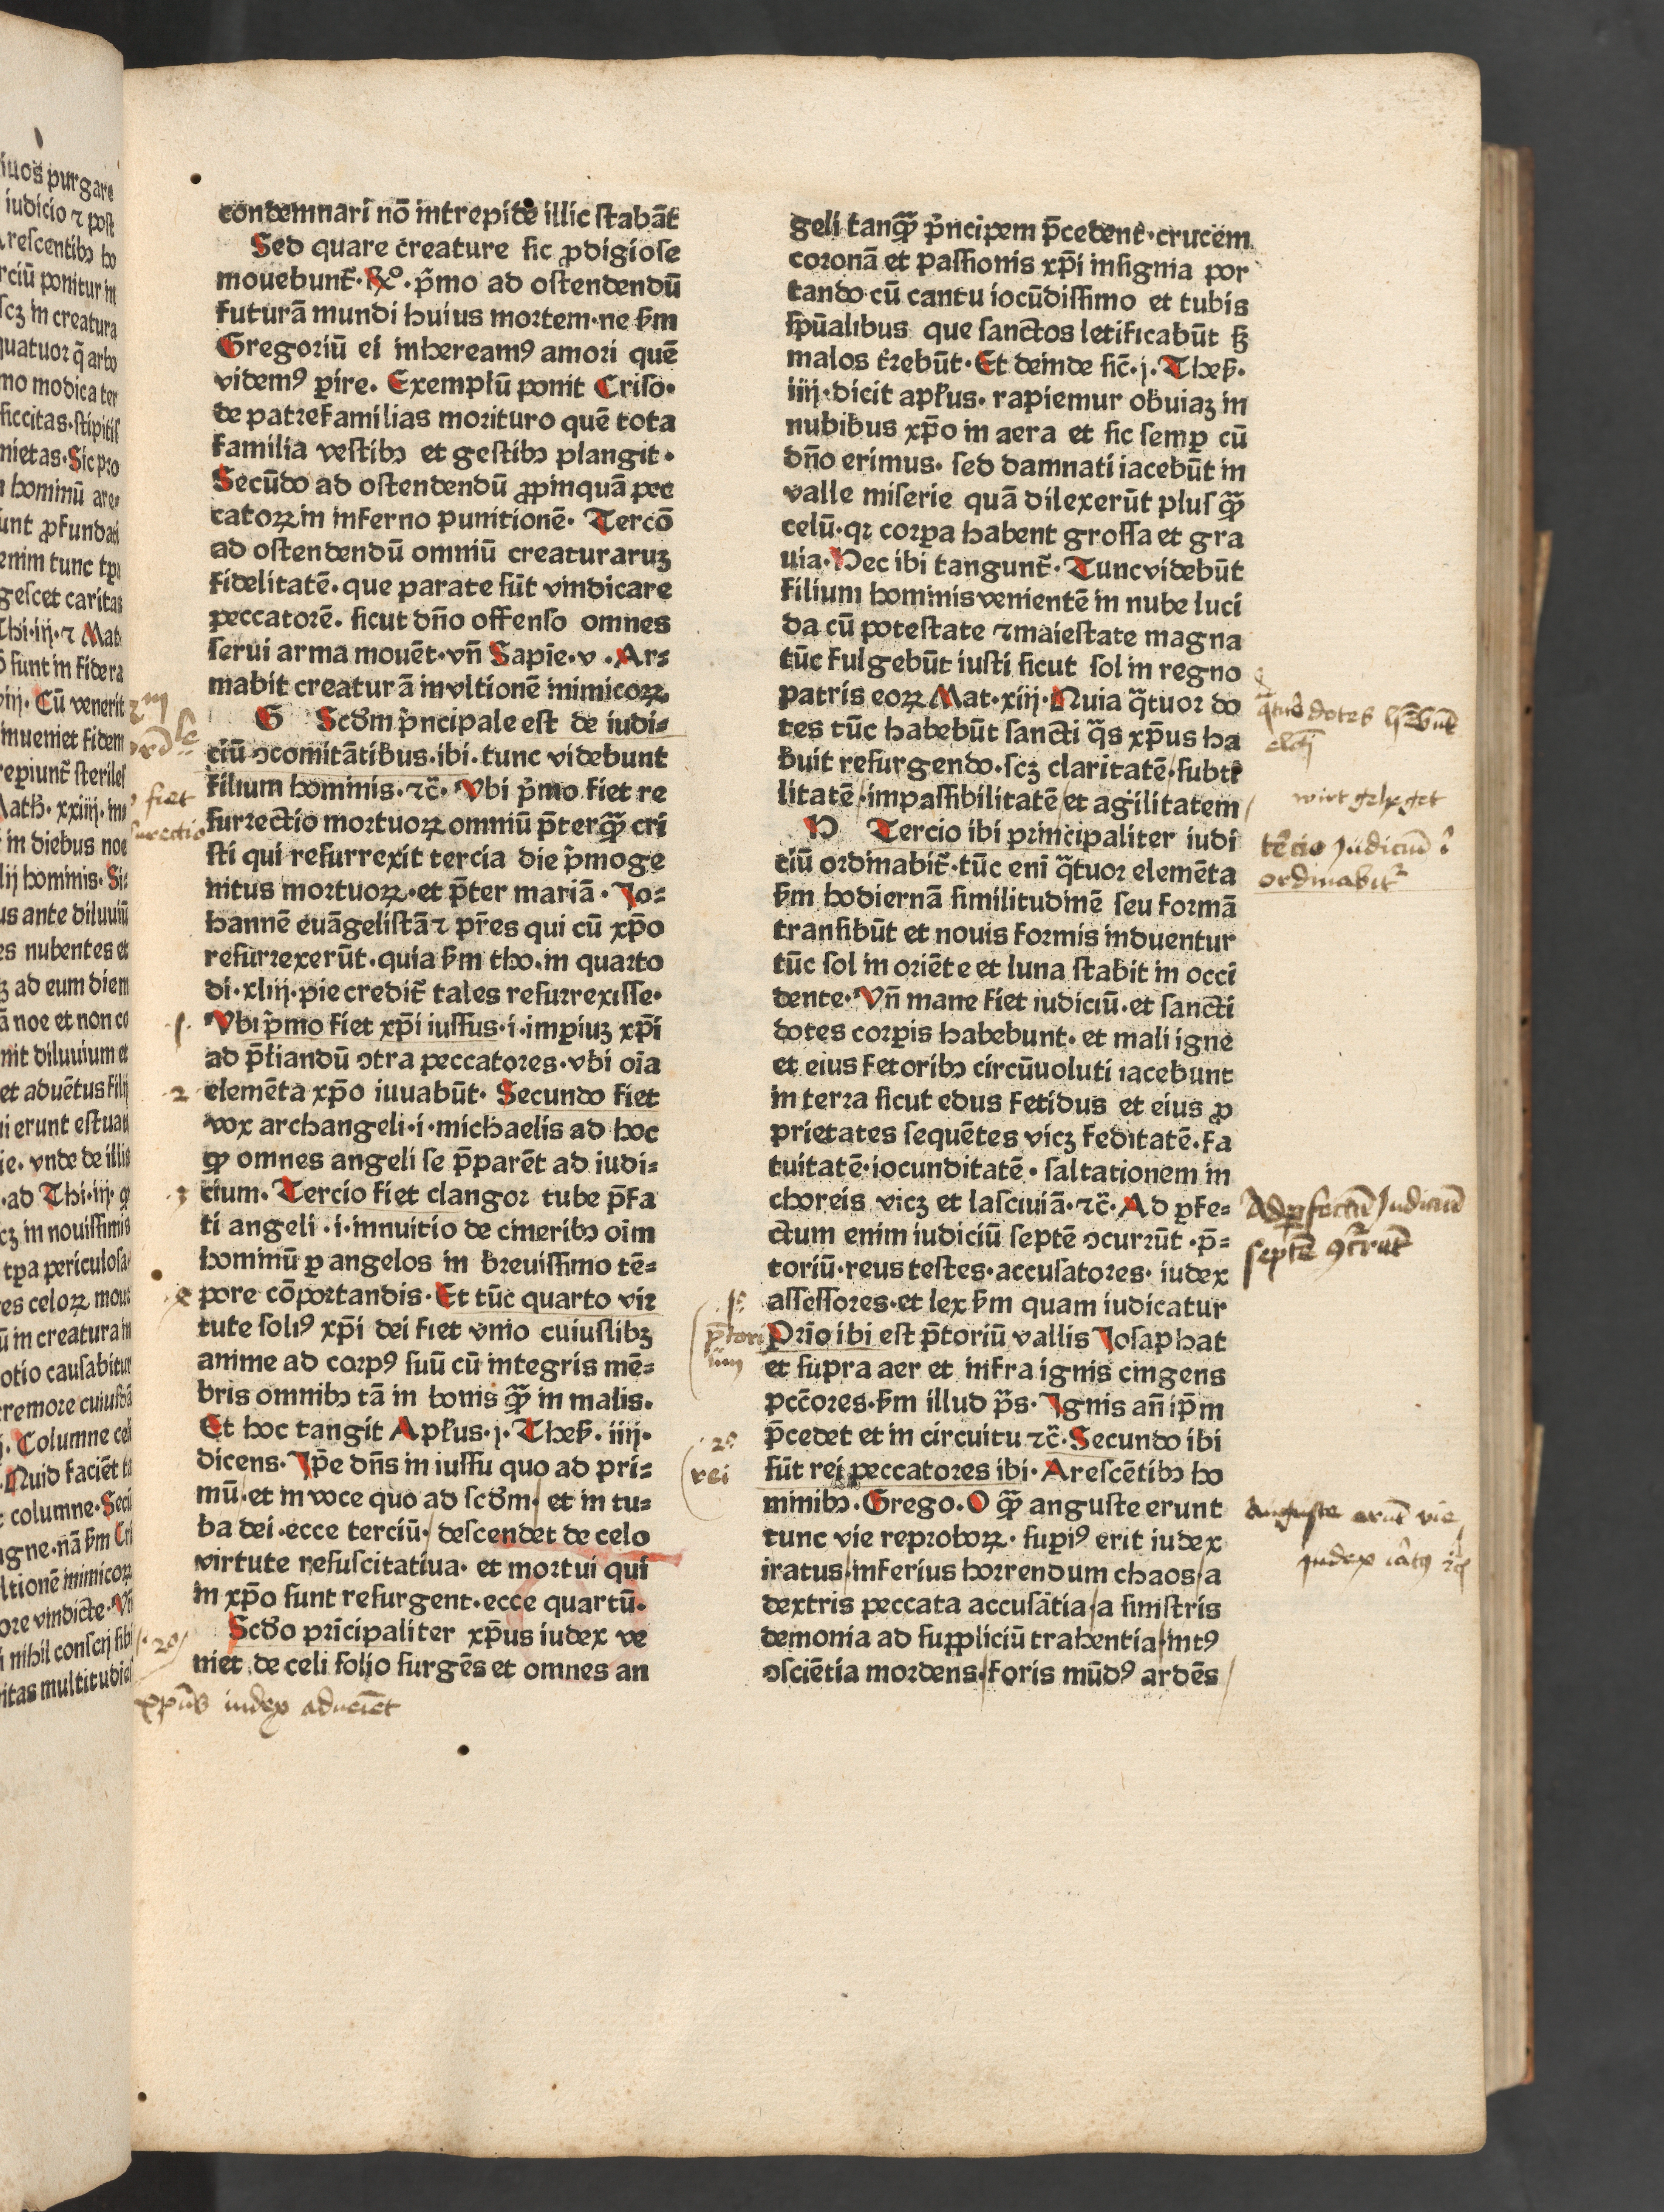 condemnari nō intrepide illic ſtabāt
Sed quare creature ſic ꝓdigioſe
mouebunt᷑·℟º·p̃mo ad oſtendendū
futurā mundi huius mortem·ne ẜm
Gregoriū ei inheream⁹ amori quē
videm⁹ ꝑire. Exemplū ponit Criſo·
de patrefamilias morituro quē tota
familia veſtibꝫ et geſtibꝫ plangit·
Secūdo ad oſtendendū ꝓpinquā pec
catoꝝ in inferno punitionē· Tercō
ad oſtendendū omniū creaturaruꝫ
fidelitatē·que parate ſūt vindicare
peccatorē. ſicut dn̄o offenſo omnes
ſerui arma mouēt·vn̄ Sapie·v·Ar⸗
mabit creaturā in vltionē inimicoꝝ
G Scd̓m p̓ncipale eſt de iudi⸗
ciū ꝯcomitātibus·ibi·tunc videbunt
filium hominis·⁊c̃· Vbi p̓mo fiet re
ſurrectio mortuoꝝ omniū p̄terꝙ̃ cri
ſti qui reſurrexit tercia die p̓moge
nitus mortuoꝝ·et p̄ter mariā· Jo⸗
hannē euāgeliſtā ⁊ pr̄es qui cū xp̄o
reſurrexerūt·quia ẜm tho·in quarto
di·xliij·pie credit᷑ tales reſurrexiſſe·
Vbi p̓mo fiet xp̄i iuſſus·i·imꝑiuꝫ xp̄i
ad p̄liandū ꝯtra peccatores·vbi oīa
elemēta xp̄o iuuabūt· Secundo fiet
vox archangeli·i·michaelis ad hoc
ꝙ omnes angeli ſe p̄parēt ad iudi⸗
cium· Tercio fiet clangor tube p̄fa
ti angeli·i·innuitio de cineribꝫ oīm
hominū ꝑ angelos in breuiſſimo tē⸗
pore cōportandis·Et tūc quarto vir
tute ſoli⁹ xp̄i dei fiet vnio cuiuſlibꝫ
anime ad corp⁹ ſuū cū integris mē⸗
bris omnibꝫ tā in bonis ꝙ̃ in malis.
Et hoc tangit Apl̓us·j·Theſ̓·iiij·
dicens·Ip̄e dn̄s in iuſſu quo ad pri⸗
mū·et in voce quo ad ſcd̓m·et in tu⸗
ba dei·ecce terciū· deſcendet de celo
virtute reſuſcitatiua· et mortui qui
in xp̄o ſunt reſurgent·ecce quartū·
Scd̓o pri̓cipaliter xp̄us iudex ve
niet de celi ſolio ſurgēs et omnes an
xp̄us iudex adueiēt
geli tanꝙ̃ p̓ncipem p̄cedent᷑·crucem
coronā et paſſionis xp̄i inſignia por
tando cū cantu iocūdiſſimo et tubis
ſpūalibus que ſanctos letificabūt ſꝫ
malos t̓rebūt·Et deinde ſic̄·j·Theſ̓·
iiij·dicit apl̓us· rapiemur obuiaꝫ in
nubibus xp̄o in aera et ſic ſemꝑ cū
dn̄o erimus· ſed damnati iacebūt in
valle miſerie quā dilexerūt pluſꝙ̃
celū·qꝛ corꝑa habent groſſa et gra
uia·Hec ibi tangunt᷑· Tunc videbūt
filium hominis venientē in nube luci
da cū poteſtate ⁊ maieſtate magna
tūc fulgebūt iuſti ſicut ſol in regno
patris eoꝝ Mat·xiij·Quia q̓tuor do
tes tūc habebūt ſancti q̓s xp̄us ha
buit reſurgendo·ſcꝫ claritatē/ſubti
litatē/impaſſibilitatē/et agilitatem/
H Tercio ibi principaliter iudi
ciū ordinabit᷑·tūc eni̅ q̓tuor elemēta
ẜm hodiernā ſimilitudinē ſeu formā
tranſibūt et nouis formis induentur
tūc ſol in oriēte et luna ſtabit in occi
dente· Vn̄ mane fiet iudiciū·et ſancti
dotes corꝑis habebunt· et mali igne
et eius fetoribꝫ circūuoluti iacebunt
in terra ſicut edus fetidus et eius ꝓ
prietates ſequētes vicꝫ feditatē·fa
tuitatē·iocunditatē· ſaltationem in
choreis vicꝫ et laſciuiā·⁊c̃·Ad ꝑfe⸗
ctum enim iudiciū ſeptē ꝯcurrūt·p̄⸗
toriū·reus teſtes·accuſatores· iudex
aſſeſſores·et lex ẜm quam iudicatur
Prīo ibi eſt p̄toriū vallis Joſaphat
et ſupra aer et infra ignis cingens
pcc̄ores·ẜm illud p̓s· Ignis an̄ ip̄m
p̄cedet et in circuitu ⁊c̃·Secundo ibi
ſūt rei peccatores ibi·Areſcētibꝫ ho
minibꝫ·Grego·O ꝙ̃ anguſte erunt
tunc vie reproboꝝ· ſuꝑi⁹ erit iudex
iratus/inferius horrendum chaos/a
dextris peccata accuſātia/a ſiniſtris
demonia ad ſuppliciū trahentia/int⁹
ꝯſciētia mordens·foris mūd⁹ ardēs/
q̓tuor dotes hr̄ebūt
tercio Judiciū
ordinabit᷑
Ad ꝑfectū Judiciū
ſeptē ꝯcurrūt
p̄tori
um
2º
rei
Anguſte erūt vie
iudex iratus